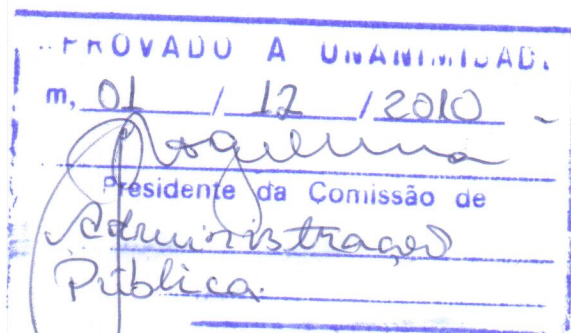 PROVADO A UNANIMIDAD
m, 01 / 12 / 2010
Presidente da Comissão de
Administração
Pública.